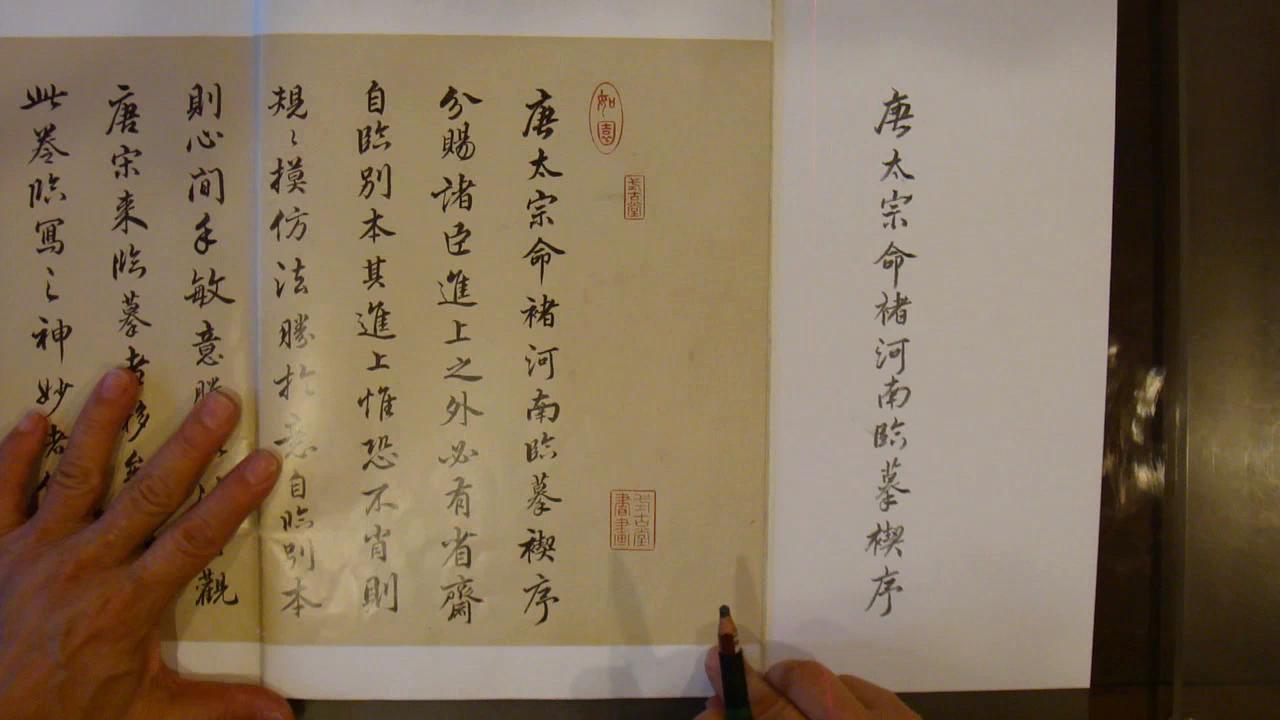 唐太宗命褚河南臨摹楔序
如意
考古堂
唐太宗命褚河南臨摹禊序
分賜諸臣進上之外必有省齋
自臨別本其進上惟恐不肖則
規〻摸仿法勝扵意自臨別本
則心閒手敏意勝
觀
唐宋来臨摹者
此卷臨寫〻神妙者